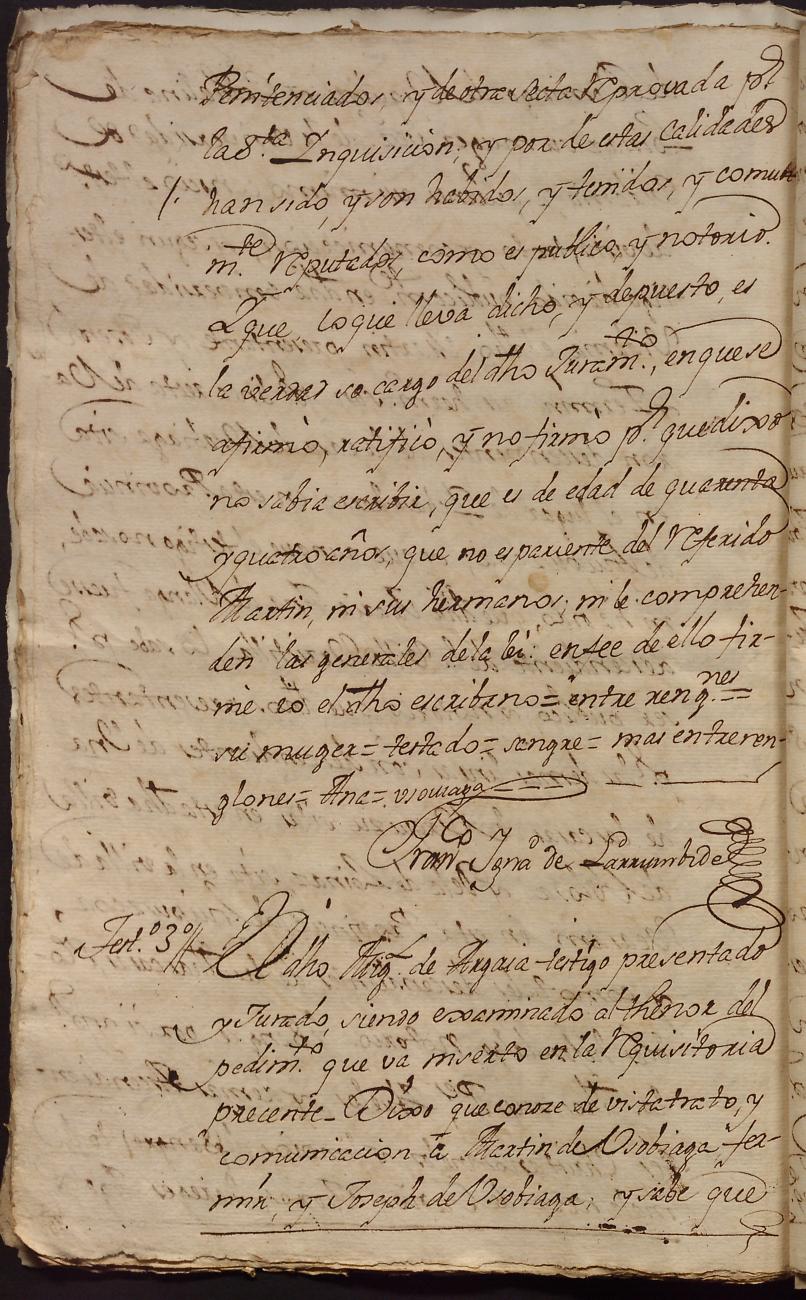 Penitenciados, y de otra secta Reprovada pr.
la Sta. Inquisicion; y por de estas Calidades
/. han sido, y son habidos, y tenidos, y comun
mte. Reputados, como es publico, y notorio.
Y que lo que lleva dicho, y depuesto, es
la verdad so cargo del dho Juramto., en que se
afirmó, ratificó, y no firmo pr. que dixo
no sabia escribir, que es de edad de quarenta
y quatro años, que no es pariente del Referido
Martin, ni sus hermanos, ni le comprehen-
den las generales de la lei: en fee de ello fir-
mé io el dho escribano = entre rengnes. =
su muger = testado = sangre = mas entreren-
glones = Ana =
Franco. Ignao. de Larrumbide
Test.o 3o// El dho Migl. de Argaia testigo presentado
y Jurado, siendo examinado al thenor del
pedimto. que va inserto en la Requisitoria
precente_ Dixo que conoze de vista trato, y
comunicacion a Martin de Usobiaga, fer-
min, y Joseph de Usobiaga; y sabe que